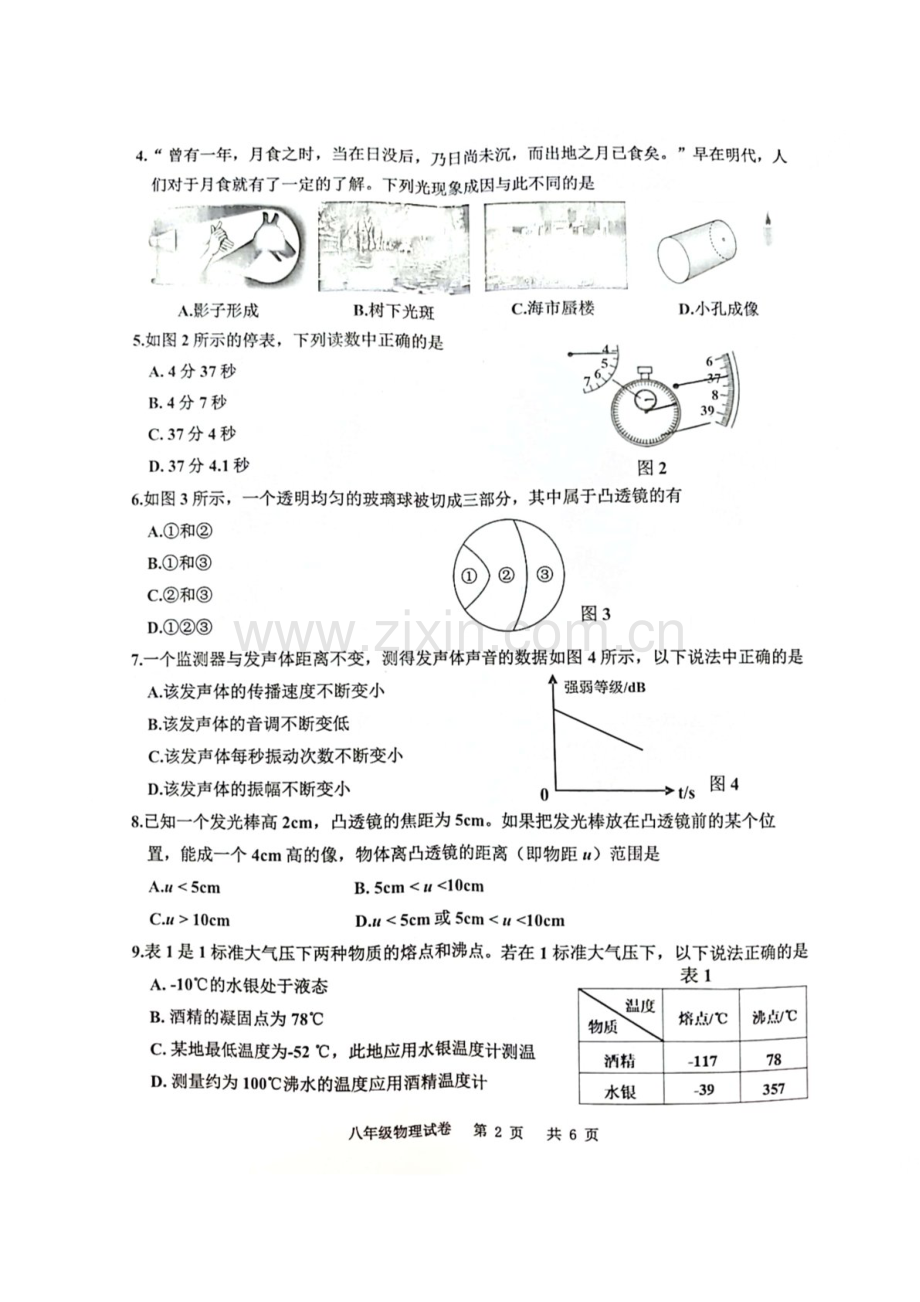 4.“ 曾有一年，月食之时，当在日没后，乃日尚未沉，而出地之月已食矣。”早在明代，人
们对于月食就有了一定的了解。下列光现象成因与此不同的是
A.影子形成 B.树下光斑 C.海市蜃楼 D.小孔成像
5.如图 2 所示的停表，下列读数中正确的是
A. 4 分 37 秒
B. 4 分 7 秒
C. 37 分 4 秒
D. 37 分 4.1 秒
4
5
6
7
6
37
8
39
图 2
6.如图 3 所示，一个透明均匀的玻璃球被切成三部分，其中属于凸透镜的有
A.①和②
B.①和③
C.②和③
D.①②③
① ② ③
图 3
www.zixin.com.cn
7.一个监测器与发声体距离不变，测得发声体声音的数据如图 4 所示，以下说法中正确的是
A.该发声体的传播速度不断变小
B.该发声体的音调不断变低
C.该发声体每秒振动次数不断变小
D.该发声体的振幅不断变小
强弱等级/dB
0 t/s 图 4
8.已知一个发光棒高 2cm，凸透镜的焦距为 5cm。如果把发光棒放在凸透镜前的某个位
置，能成一个 4cm 高的像，物体离凸透镜的距离（即物距 u）范围是
A.u < 5cm B. 5cm < u <10cm
C.u > 10cm D.u < 5cm 或 5cm < u <10cm
9.表 1 是 1 标准大气压下两种物质的熔点和沸点。若在 1 标准大气压下，以下说法正确的是
A. -10℃的水银处于液态
B. 酒精的凝固点为 78℃
C. 某地最低温度为-52 ℃，此地应用水银温度计测温
D. 测量约为 100℃沸水的温度应用酒精温度计
表 1
温度
物质 熔点/℃ 沸点/℃
酒精 -117 78
水银 -39 357
八年级物理试卷 第 2 页 共 6 页